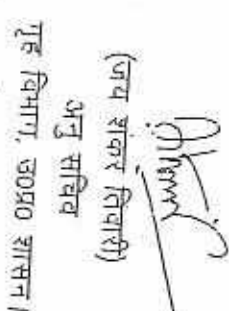 (जय शंकर तिवारी)
अनु सचिव
गृह विभाग, उ०प्र० शासन।